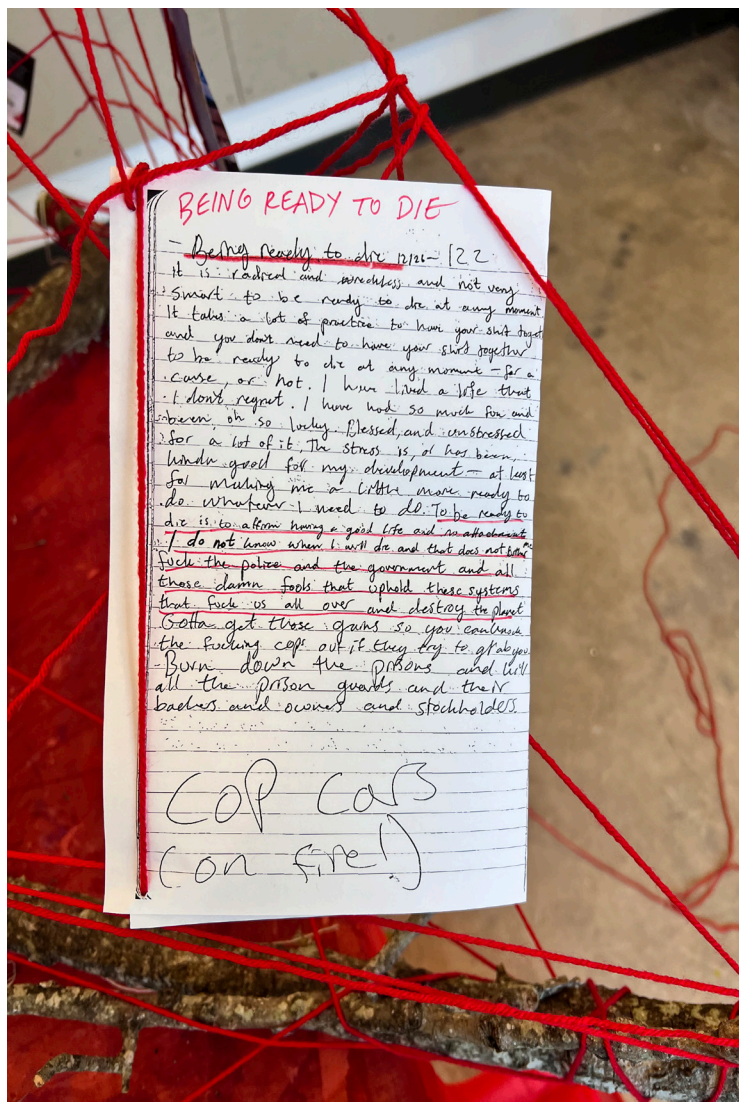 BEING READY TO DIE
- Being ready to die 12/26 - 122
It is radical and wreckless and not very
smart to be ready to die at any moment.
It takes a lot of practice to have your shit toget
and you don't need to have your shit together
to be ready to die at any moment - for a
cause, or not. I have lived a life that
I don't regret. I have had so much fun and
been, oh so lucky. Blessed, and unstressed
for a lot of it, The stress is, or has been,
kinda good for my development - at least
for making me a little more ready to
do whatever I need to do. To be ready to
die is to affirm having a good life and no attachment
I do not know when I will die and that does not bother me
fuck the police and the government and all
those damn fools that uphold these systems
that fuck us all over and destroy the planet
Gotta get those gains so you can knock
the fucking cops out if they try to grab you
- Burn down the prisons and kill
all the prison guards and their
backers and owners and stockholders
COP Cars
(on fire!)